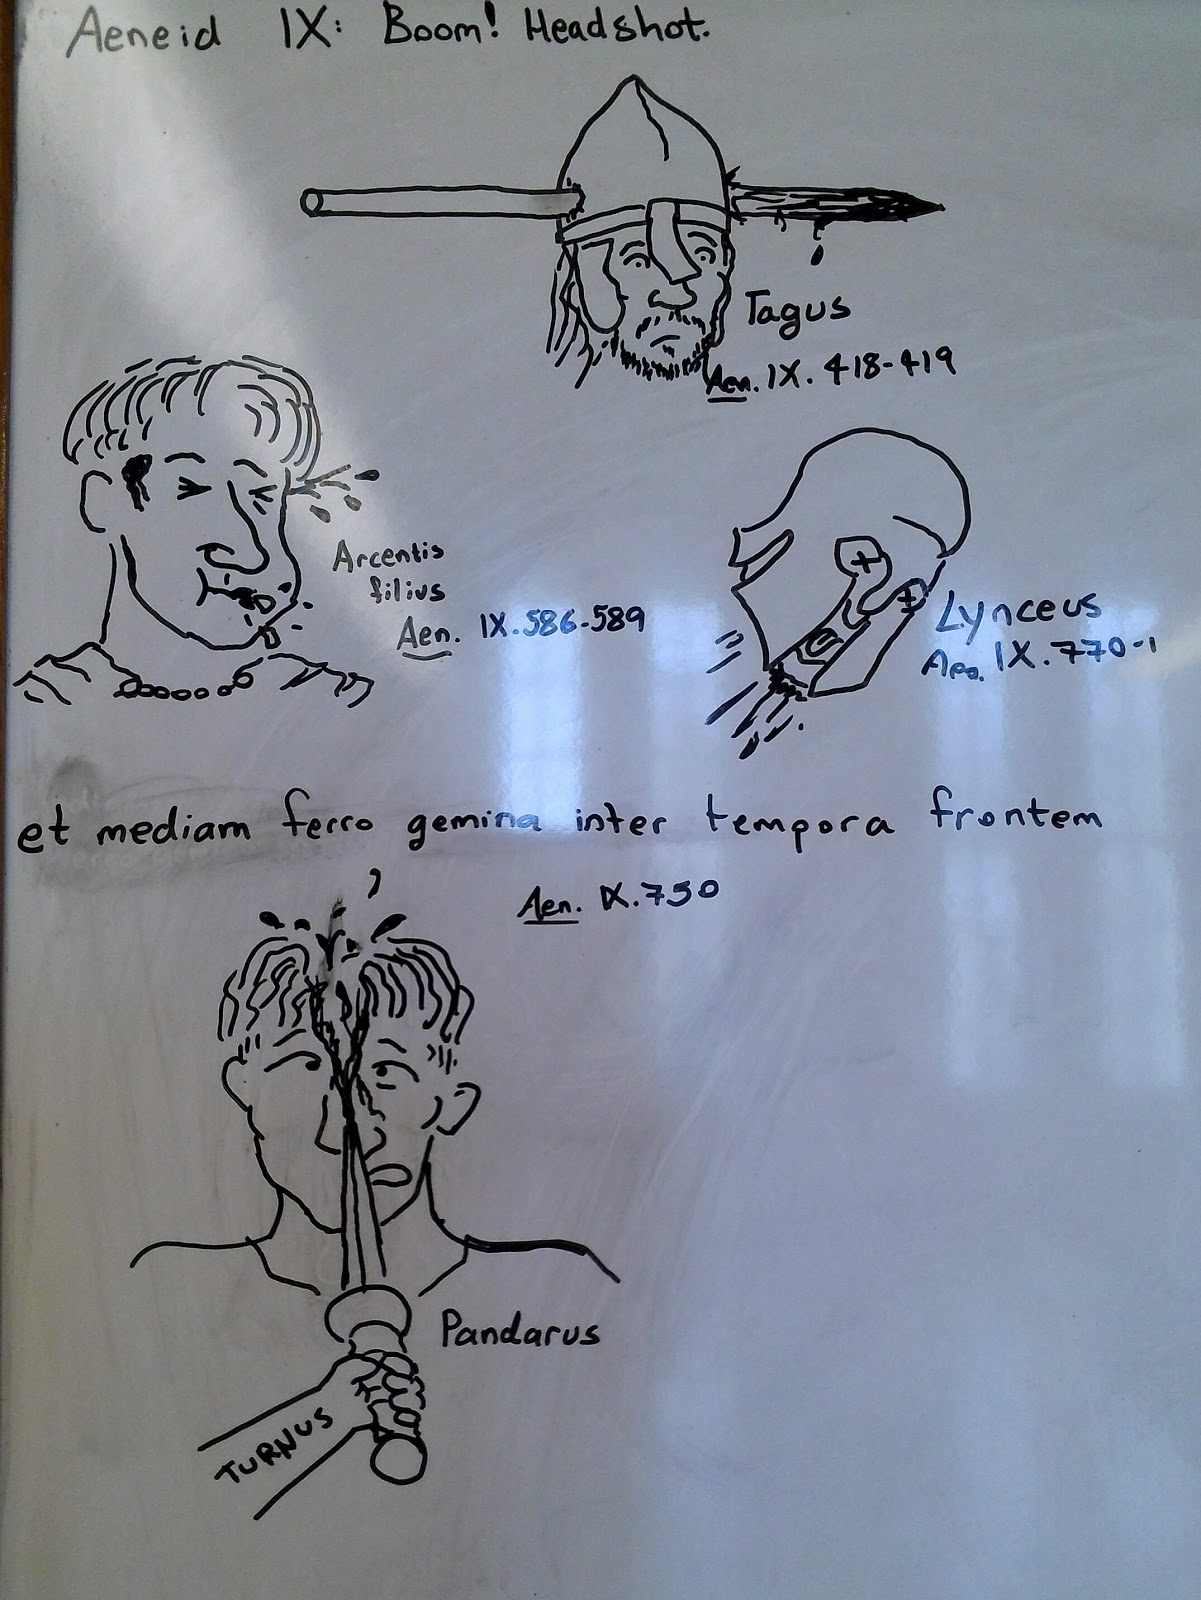 Aeneid IX: Boom! Headshot.
Tagus
Aen. IX. 418-419
Arcentis
filius
Aen. IX.586-589
Lynceus
Aen. IX.770-1
et mediam ferro gemina inter tempora frontem
Aen. IX.750
Pandarus
TURNUS